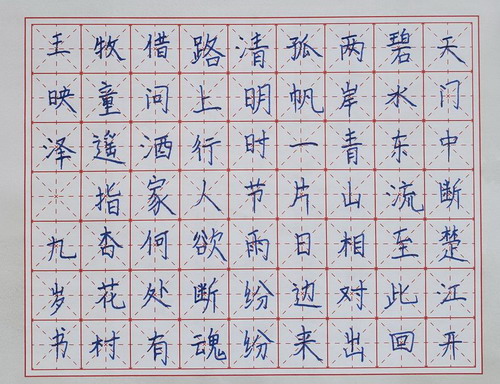 天门中断楚江开
碧水东流至此回
两岸青山相对出
孤帆一片日边来
清明时节雨纷纷
路上行人欲断魂
借问酒家何处有
牧童遥指杏花村
王映泽 九岁书